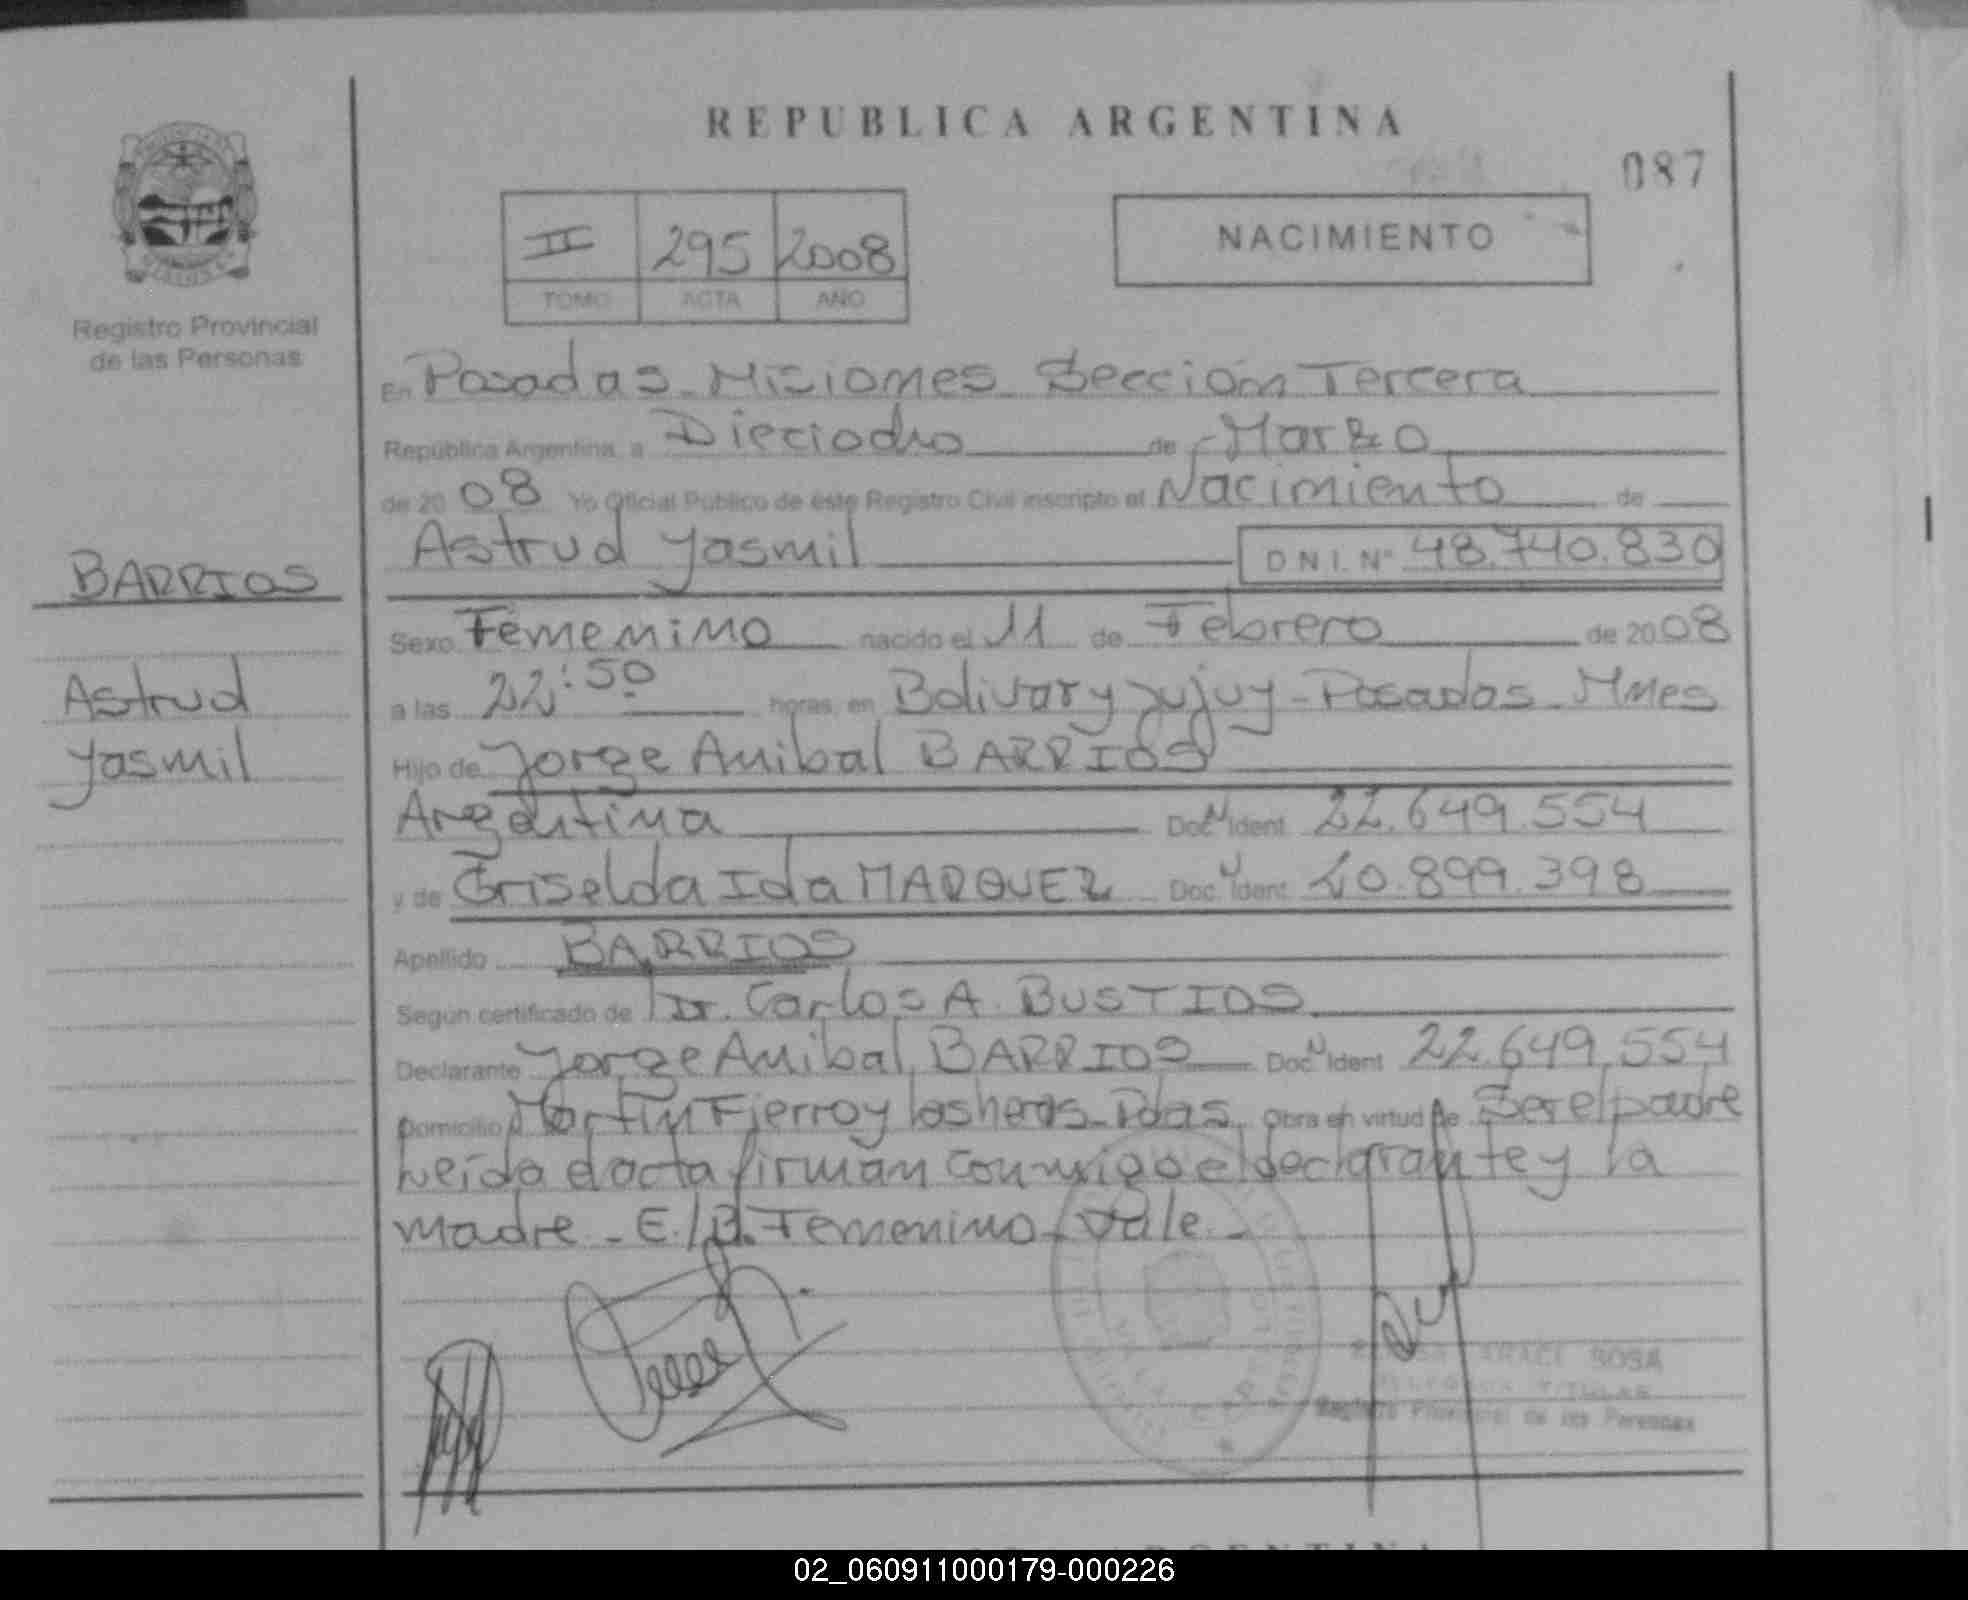 REPUBLICA ARGENTINA
087
II 295 2008
TOMO ACTA AÑO
NACIMIENTO
Registro Provincial
de las Personas
En Posadas - Misiones Sección Tercera
República Argentina, a Dieciocho de Marzo
de 2008 Yo Oficial Público de éste Registro Civil inscripto el Nacimiento de
Astrud Yasmil D N I. Nº 48.740.830
BARRIOS
Astrud
Yasmil
Sexo Femenino nacido el 11 de Febrero de 2008
a las 22:50 horas, en Bolivar y Jujuy - Posadas - Mnes
Hijo de Jorge Anibal BARRIOS
Argentina Doc N Ident. 22.649.554
y de Griselda Ida MARQUEZ Doc. Ident. 20.899.398
Apellido BARRIOS
Según certificado de Dr. Carlos A. BUSTIOS
Declarante Jorge Anibal BARRIOS Doc N Ident 22.649.554
Domicilio Martín Fierro y las heras - Pdas. Obra en virtud de Ser el padre
Leída el acta firman conmigo el declarante y la
madre - E/B. Femenino - Vale -
ARACI SOSA
TITULAR
Registro Provincial de las Personas
02_060911000179-000226